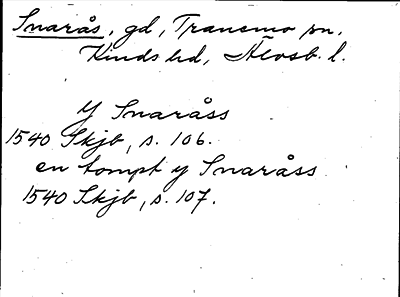 Snarås, gd, Tranemo sn,
Kinds hd, Älvsb. l.
Y Snaråss
1540 Skjb, s. 106.
en tompt y Snaråss
1540 Skjb, s. 107.